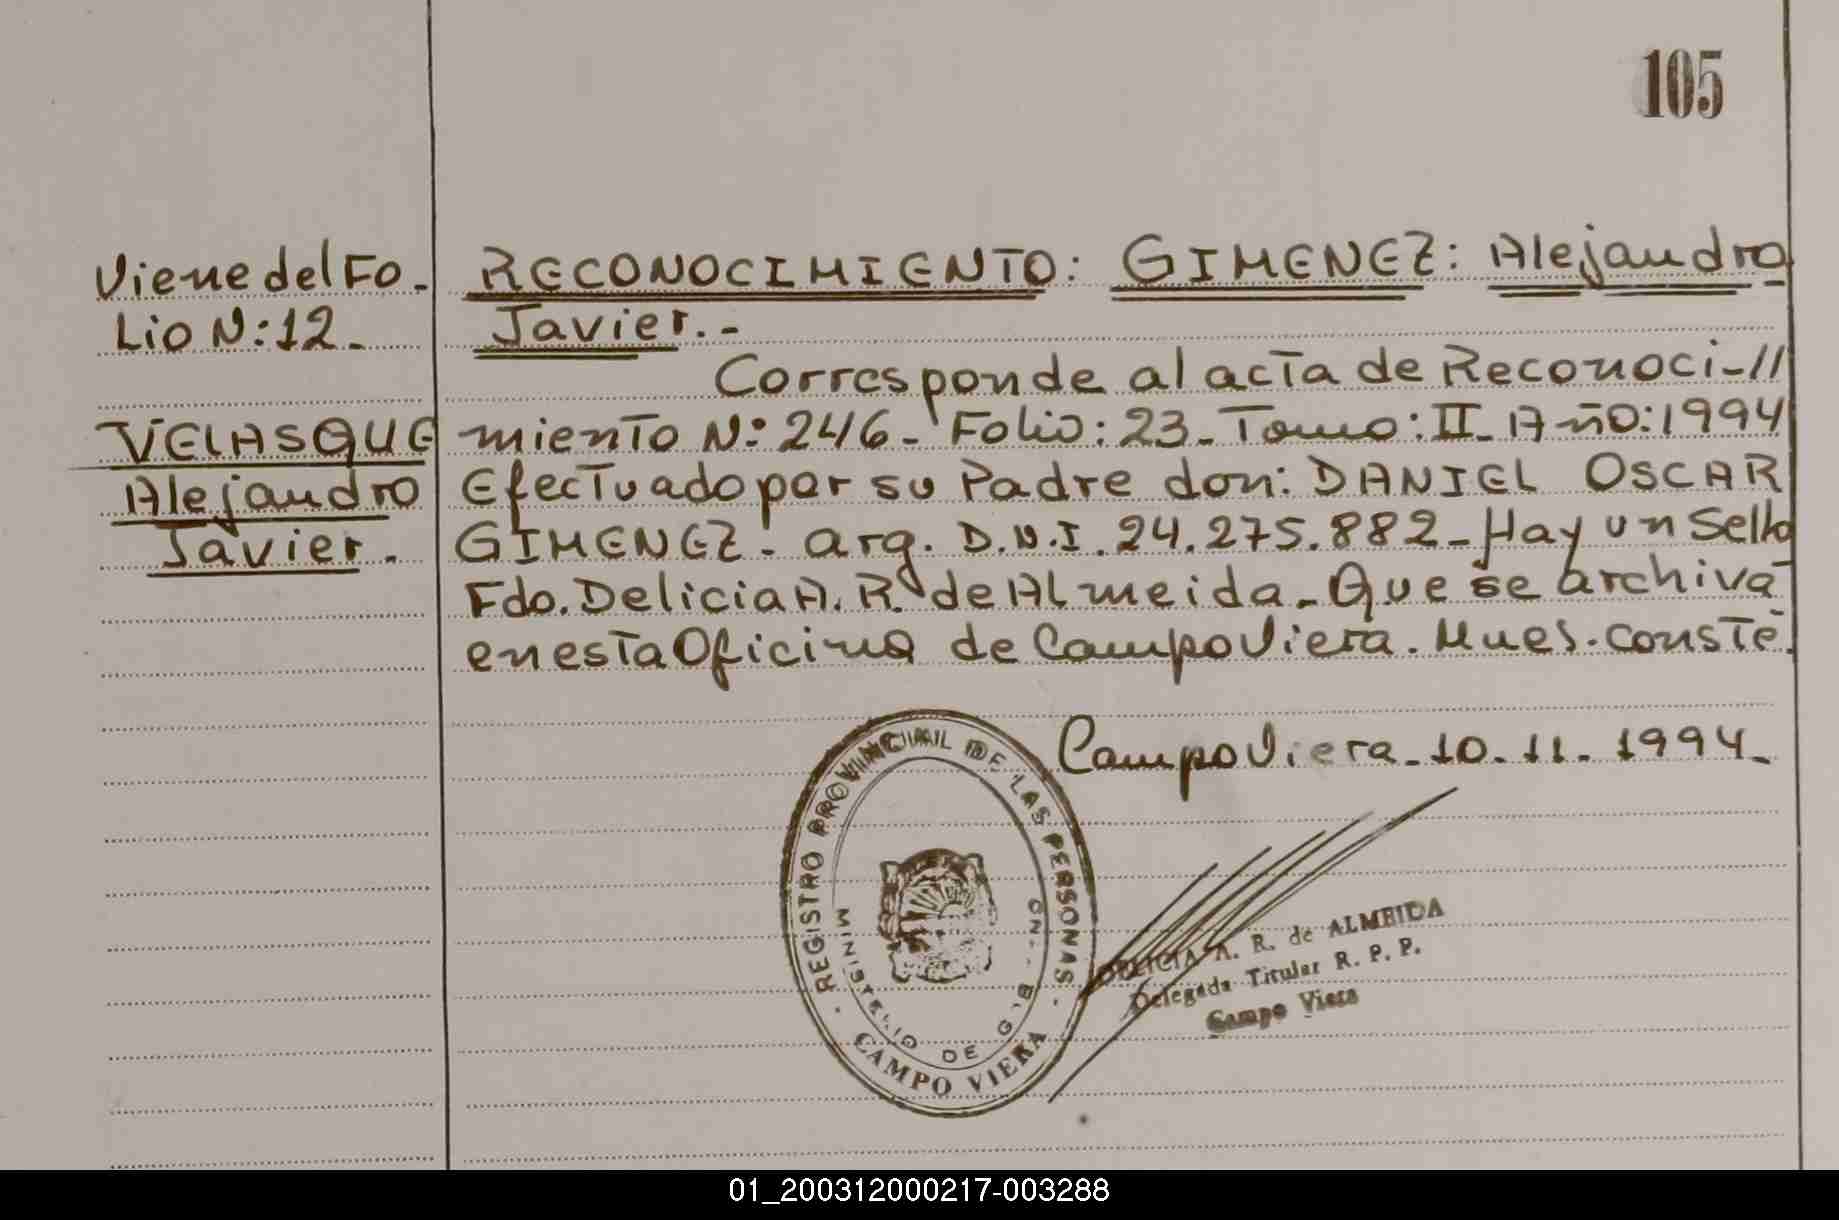 105
Viene del Fo-
Lio N:12.-
VELASQUE
Alejandro
Javier.-
RECONOCIMIENTO: GIMENEZ: Alejandro
Javier.-
Corresponde al acta de Reconoci-//
miento Nº 246- Folio: 23- Tomo: II- Año: 1994
Efectuado por su Padre don: DANIEL OSCAR
GIMENEZ- arg. D.N.I. 24.275.882- Hay un Sello
Fdo. Delicia A. R. de Almeida- Que se archiva
en esta Oficina de Campo Viera. Mnes. conste.
Campo Viera- 10-11-1994-
REGISTRO PROVINCIAL DE LAS PERSONAS
MINISTERIO DE
CAMPO VIERA
DELICIA A. R. de ALMEIDA
Delegada Titular R. P. P.
Campo Viera
01_200312000217-003288